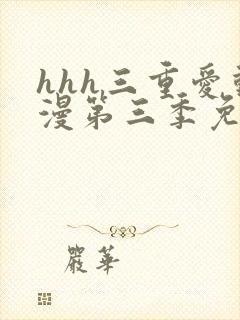 hhh三重愛
漫第三季免
嚴華